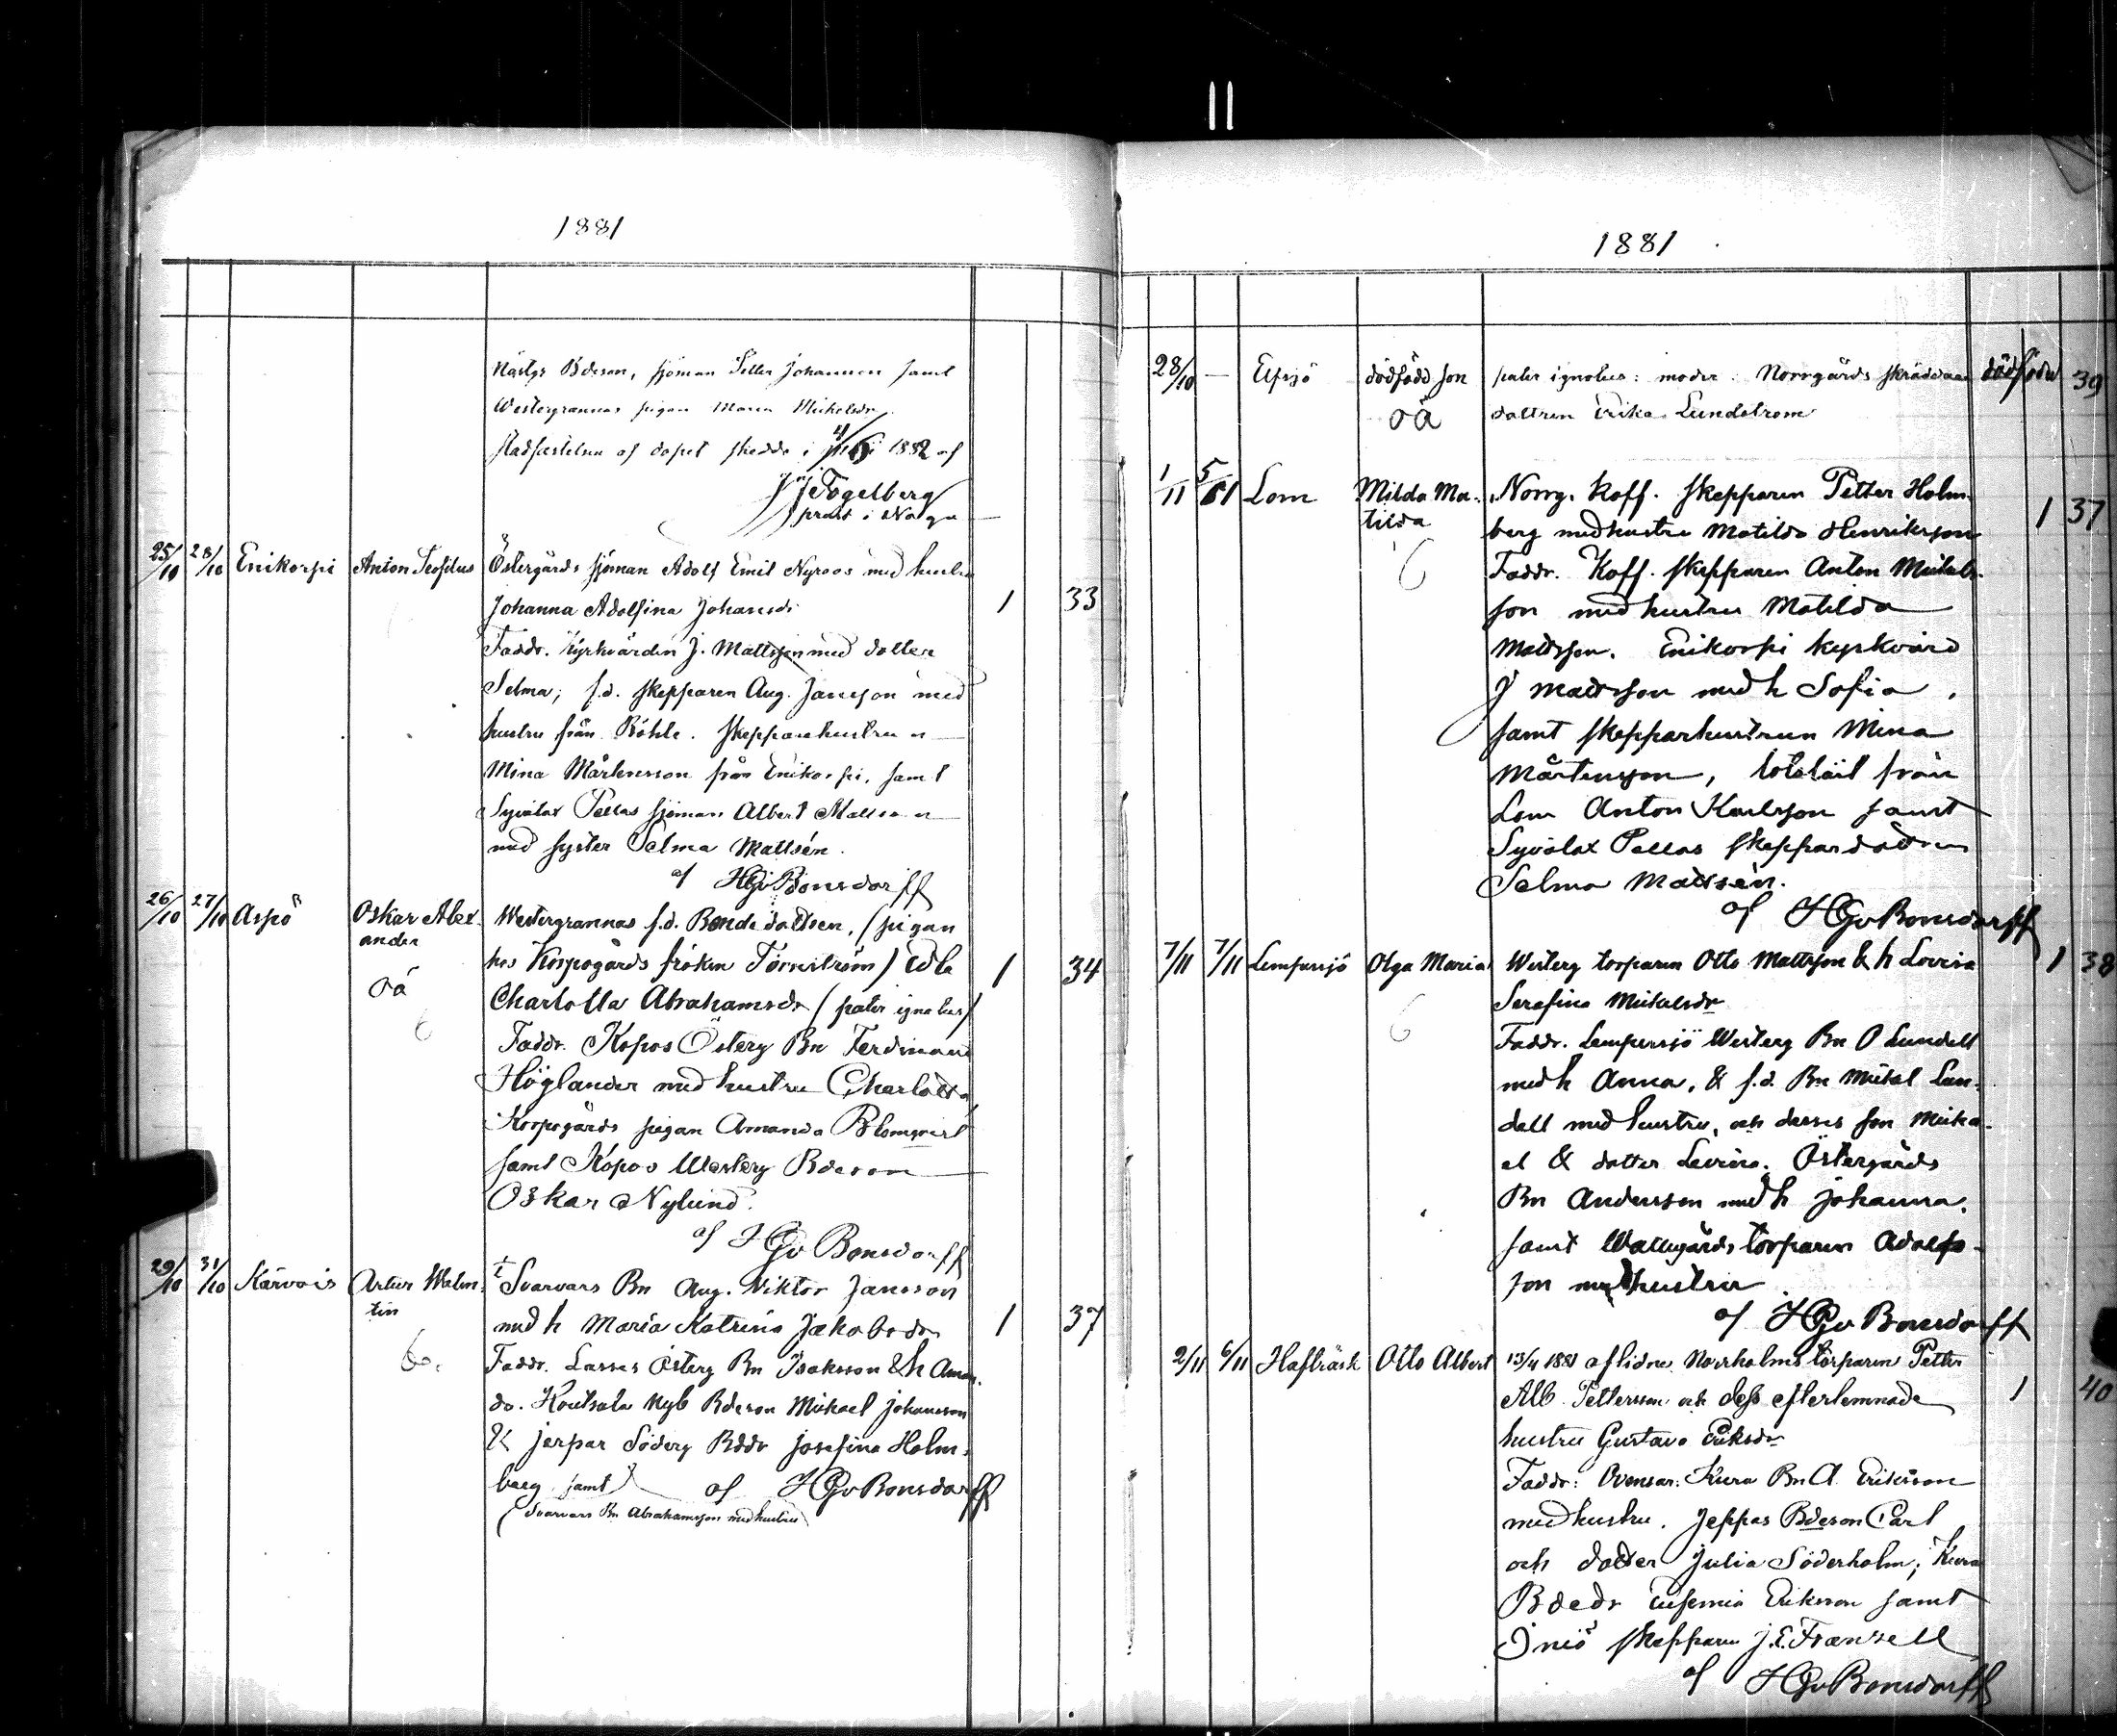 1881
Nästgs Bdeson, sjöman Petter Johansson samt
Westergrannas pigan Maria Mickelsdr.
Stadfästelsen af dopet skedde i 1882 af
J Fogelberg
prost i Nagu
25/10 28/10 Enikorpi Anton Teofilus Östergårds sjöman Adolf Emil Nyroos med hustru
Johanna Adolfina Johansdr 1 33
Faddr. Kyrkvärden J. Mattsson med dotter
Selma; f.d. skepparen Aug. Jansson med
hustru från Röhle. Skepparehustrun
Mina Mårtensson från Enikorpi, samt
Syvälax Pellas sjöman Albert Mattsson
med syster Selma Mattsén.
af HGvBonsdorff
26/10 27/10 Aspö Oskar Alex- Westergrannas f.d. Bonde dottren, (pigan
ander hos Korpogårds fröken Törnström) Edla 1 34
oä Charlotta Abrahamsdr (pater ignotus)
Faddr. Kopos Österg Bn Ferdinand
Höglander med hustru Charlotta,
Korpogårds pigan Amanda Blomqvist
samt Kopos Westerg Bdeson
Oskar Nylund.
af HGvBonsdorff
29/10 31/10 Kärvois Artur Walen- Svarvars Bn Aug. Viktor Jansson
tin med h Maria Katrina Jakobsdr 1 37
Faddr. Lasses Österg Bn Isaksson & h Aman-
da. Houtsala Nyb Bdeson Mikael Johansson
& Jerpar Söderg Bddr Josefina Holm-
berg samt af HGvBonsdorff
(Svarvars Bn Abrahamsson med hustru)
1881
28/10 — Elfsjö dödfödd son pater ignotus: moder: Norrgårds skräddare dödfödd 39
oä dottren Erika Lundström
1/11 5/11 Lom Milda Ma- Norrg. Koff. skepparen Petter Holm-
tilda berg med hustru Matilda Henriksson 1 37
Faddr. Koff. skepparen Anton Mickels-
son med hustru Matilda
Mattsson. Enikorpi kyrkvärd
J Mattsson med h Sofia,
samt skepparhustrun Mina
Mårtensson, från
Lom Anton Karlsson samt
Syvälax Pellas skeppardottren
Selma Mattsén.
af HGvBonsdorff
7/11 7/11 Lempersjö Olga Maria Westerg torparen Otto Mattsson & h Lovisa 1 38
Serafina Mickelsdr
Faddr. Lempersjö Westerg Bn O Lundell
med h Anna, & f.d. Bn Mickel Lun-
dell med hustru, och desses son Micka-
el & dotter Lovisa. Östergårds
Bn Andersson med h Johanna,
samt Wallegårds torparen Adolfs-
son med hustru
af HGvBonsdorff
2/11 6/11 Hafträsk Otto Albert 13/4 1881 aflidne Norrholms torparen Petter
Alb. Pettersson och dess efterlemnade 1 40
hustru Gustava Eriksdr
Faddr: Ovensar: Kura Bn A. Eriksson
med hustru. Jeppas Bdeson Carl
och dotter Julia Söderholm; Kura
Bdedr Eufemia Eriksson samt
Iniö skepparen J.E. Franzell
af HGvBonsdorff